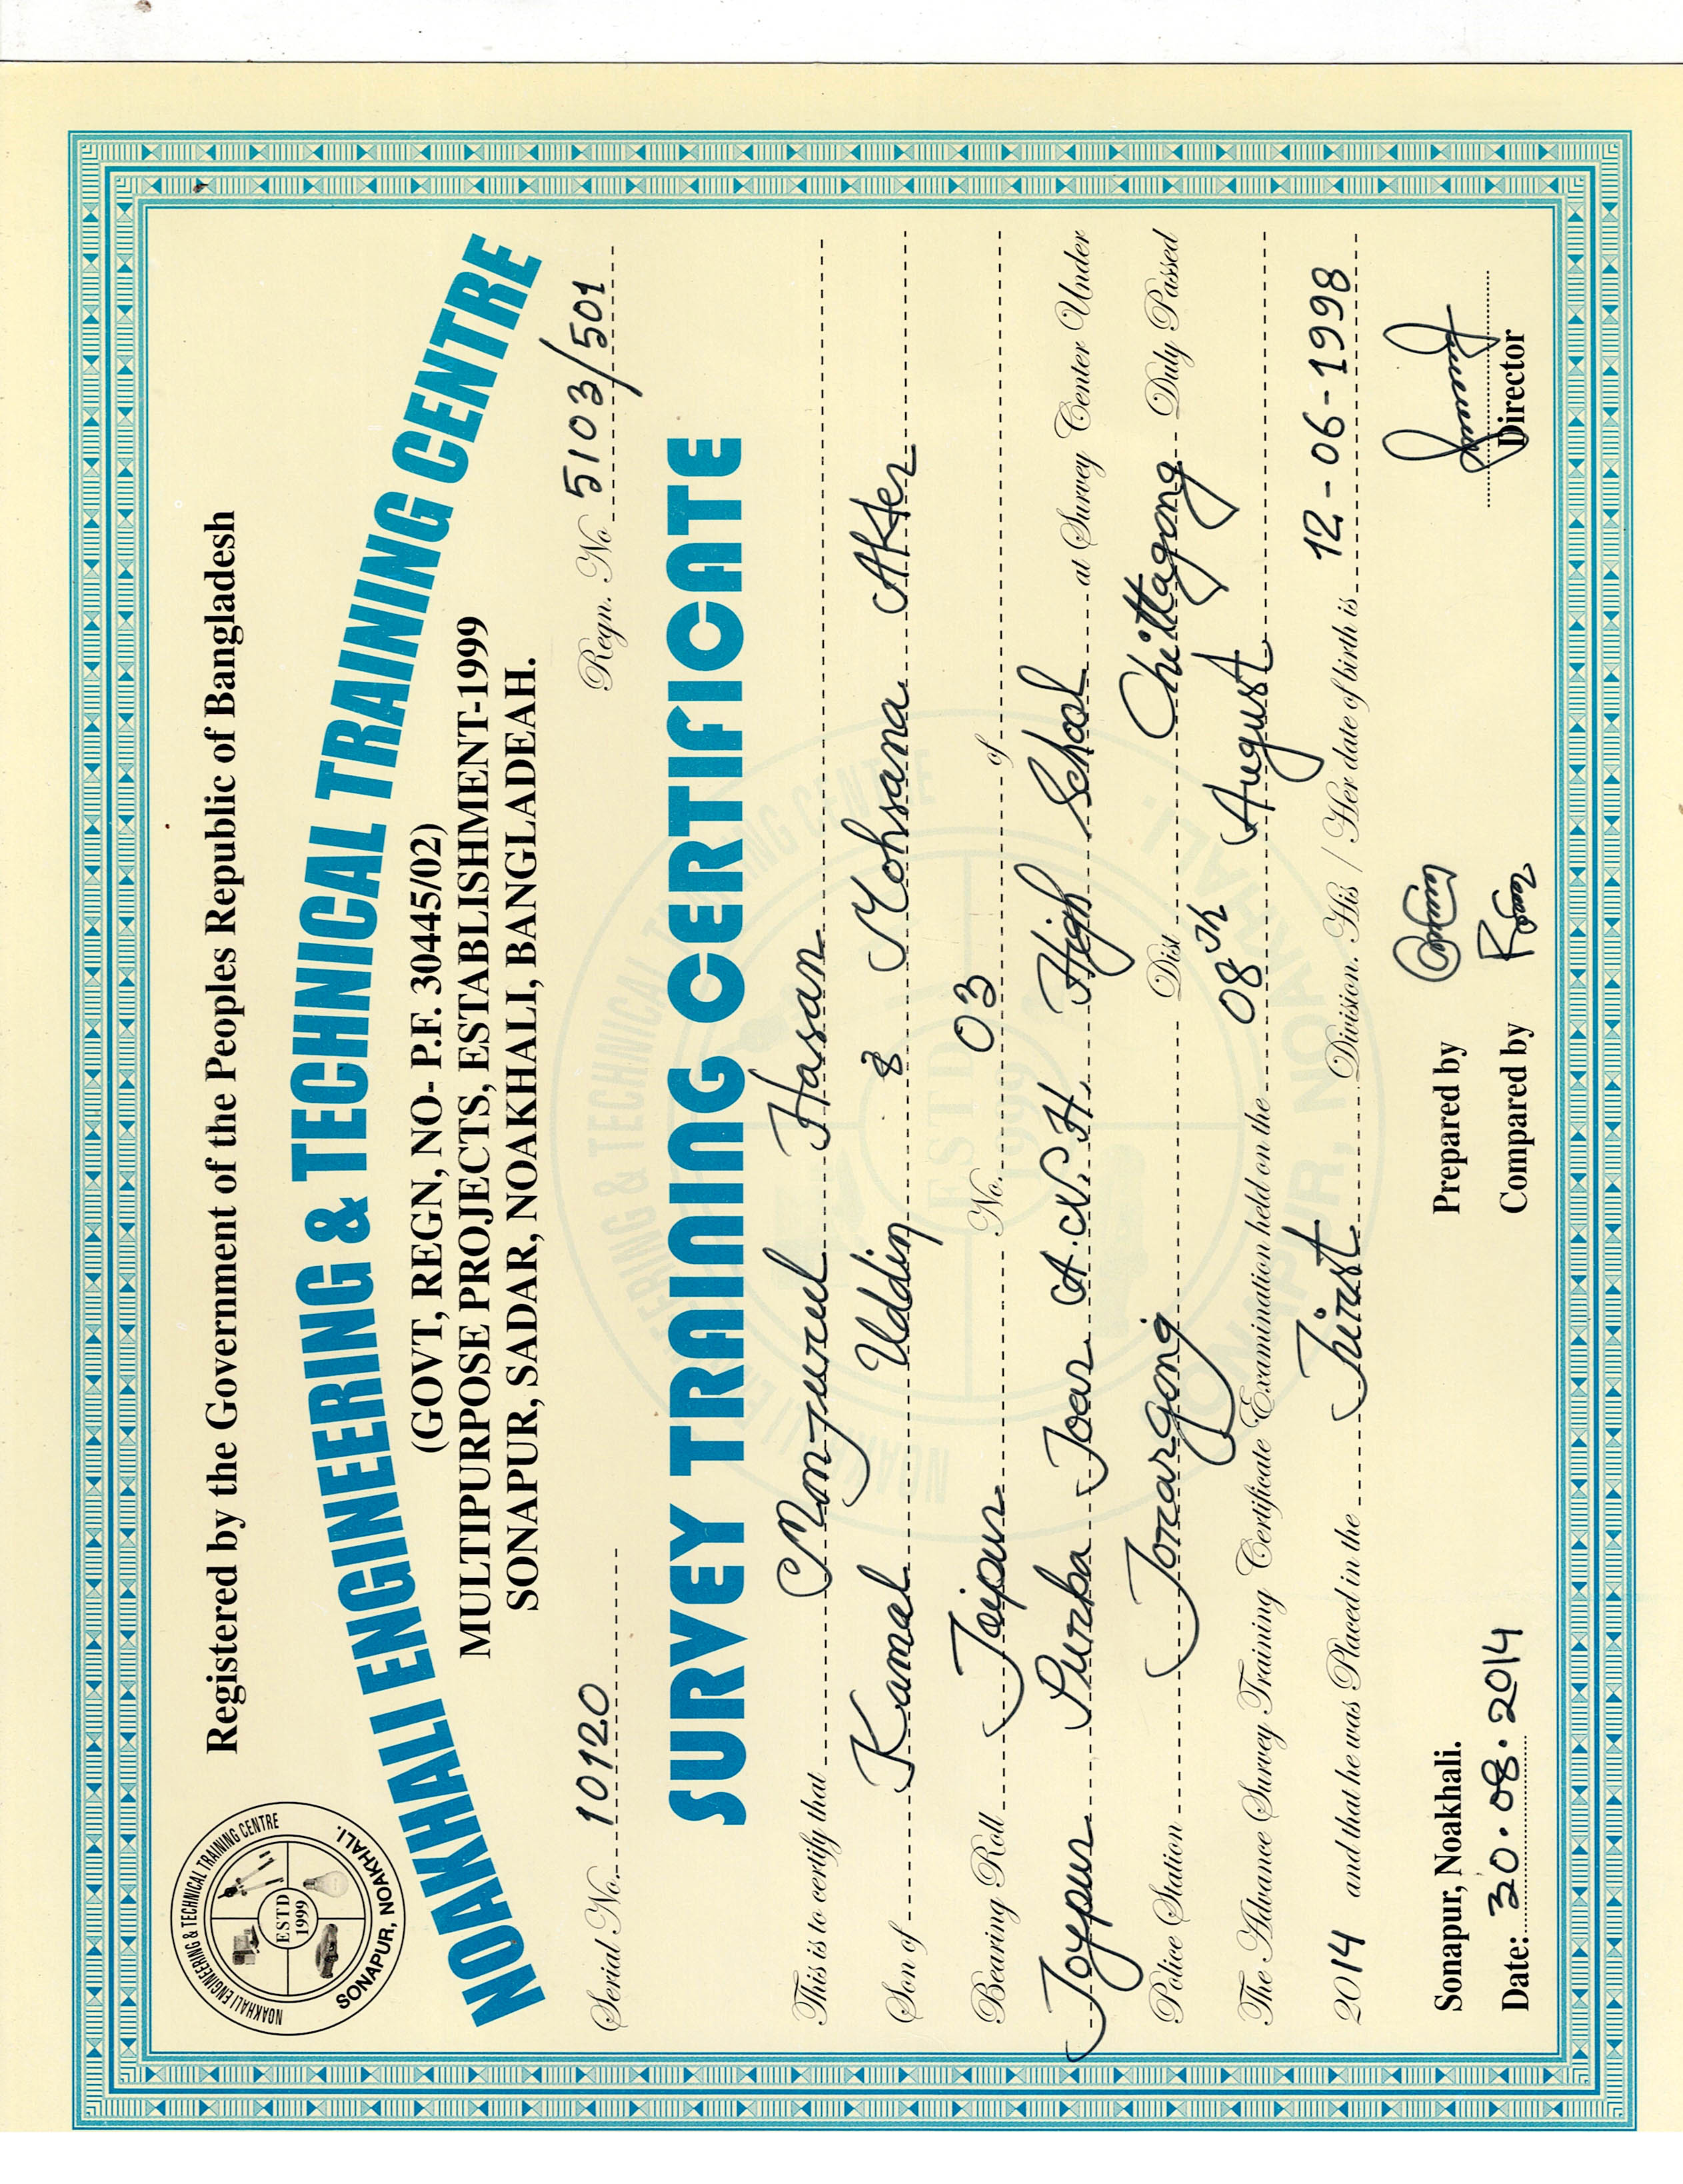 Registered by the Government of the Peoples Republic of Bangladesh
NOAKHALI ENGINEERING & TECHNICAL TRAINING CENTRE
SONAPUR, NOAKHALI.
ESTD
1999
NOAKHALI ENGINEERING & TECHNICAL TRAINING CENTRE
(GOVT, REGN, NO- P.F. 30445/02)
MULTIPURPOSE PROJECTS, ESTABLISHMENT-1999
SONAPUR, SADAR, NOAKHALI, BANGLADEAH.
Serial No. 10120 Regn. No 5103/501
SURVEY TRAINING CERTIFICATE
This is to certify that Monjurul Hasan
Son of Kamal Uddin & Mohsana Akter
Bearing Roll Joipur No. 03 of
Joypur Purba Joar A.N.H. High School at Survey Center Under
Police Station Jorargong Dist Chittagong Duly Passed
The Advance Survey Training Certificate Examination held on the 08th August
2014 and that he was Placed in the First Division. His / Her date of birth is 12-06-1998
Sonapur, Noakhali. Prepared by
Date: 30.08.2014 Compared by Director